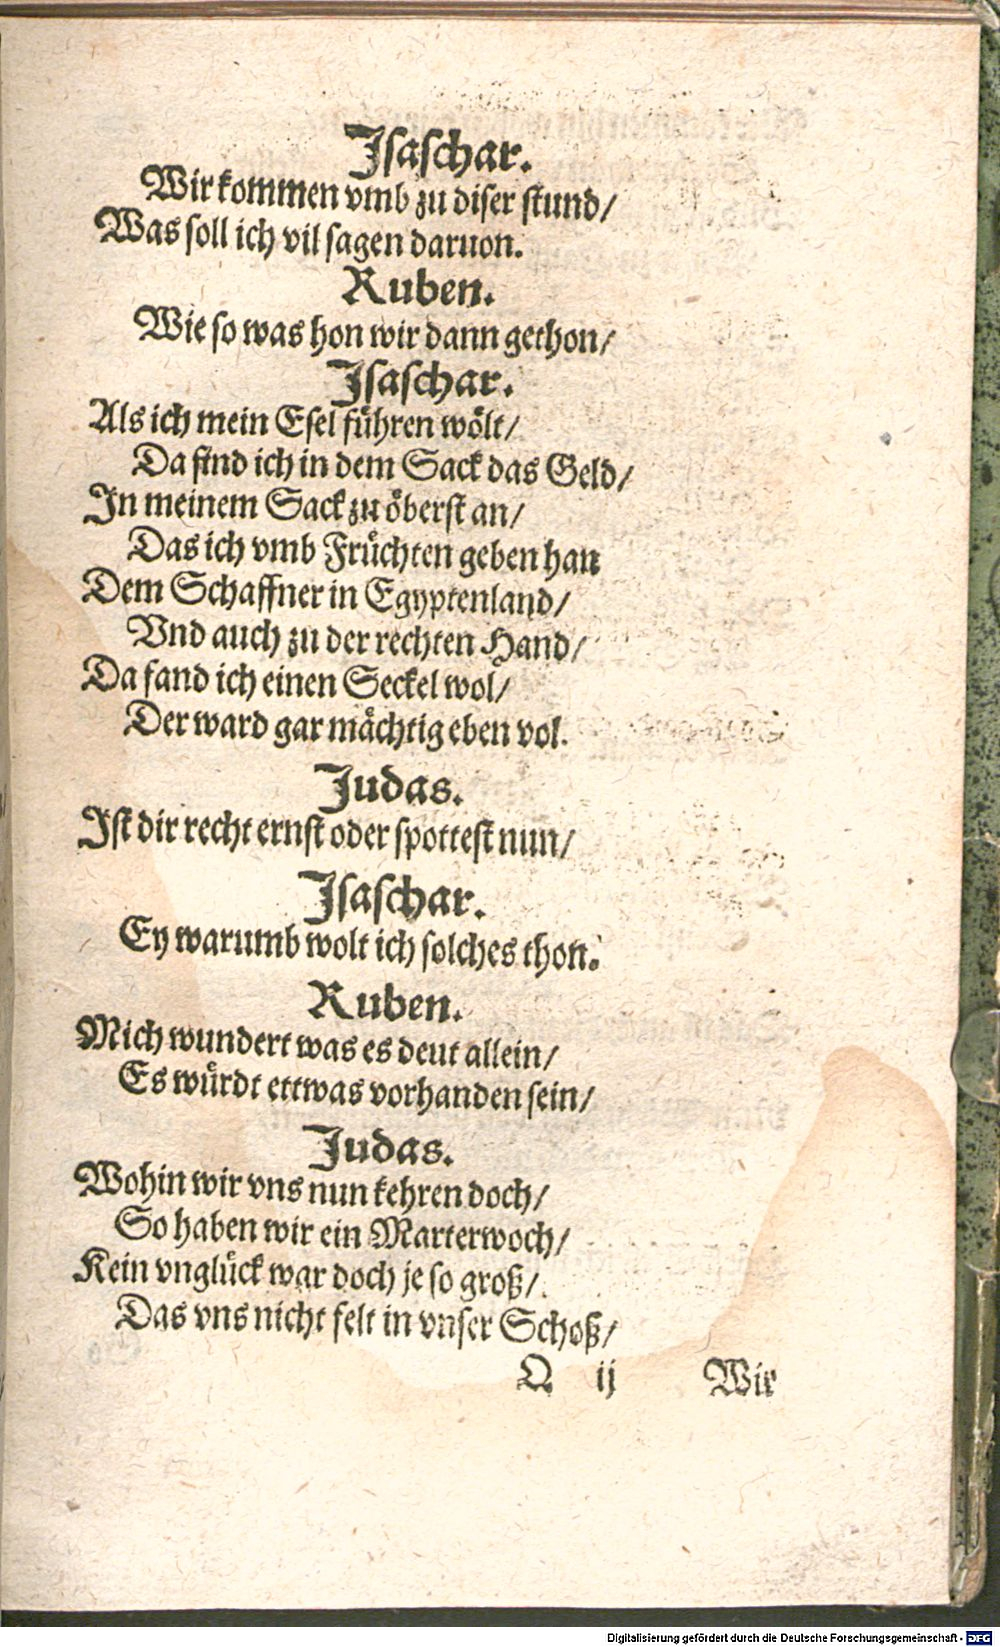 Jsaschar.
Wir kommen vmb zu diser stund/
Was soll ich vil sagen daruon.
Ruben.
Wie so was hon wir dann gethon/
Jsaschar.
Als ich mein Esel führen wölt/
Da find ich in dem Sack das Geld/
Jn meinem Sack zu öberst an/
Das ich vmb Früchten geben han
Dem Schaffner in Egyptenland/
Vnd auch zu der rechten Hand/
Da fand ich einen Seckel wol/
Der ward gar mächtig eben vol.
Judas.
Jst dir recht ernst oder spottest nun/
Jsaschar.
Ey warumb wolt ich solches thon.
Ruben.
Mich wundert was es deut allein/
Es würdt ettwas vorhanden sein/
Judas.
Wohin wir vns nun kehren doch/
So haben wir ein Marterwoch/
Kein vnglück war doch je so groß/
Das vns nicht felt in vnser Schoß/
Q ij Wir
Digitalisierung gefördert durch die Deutsche Forschungsgemeinschaft - DFG